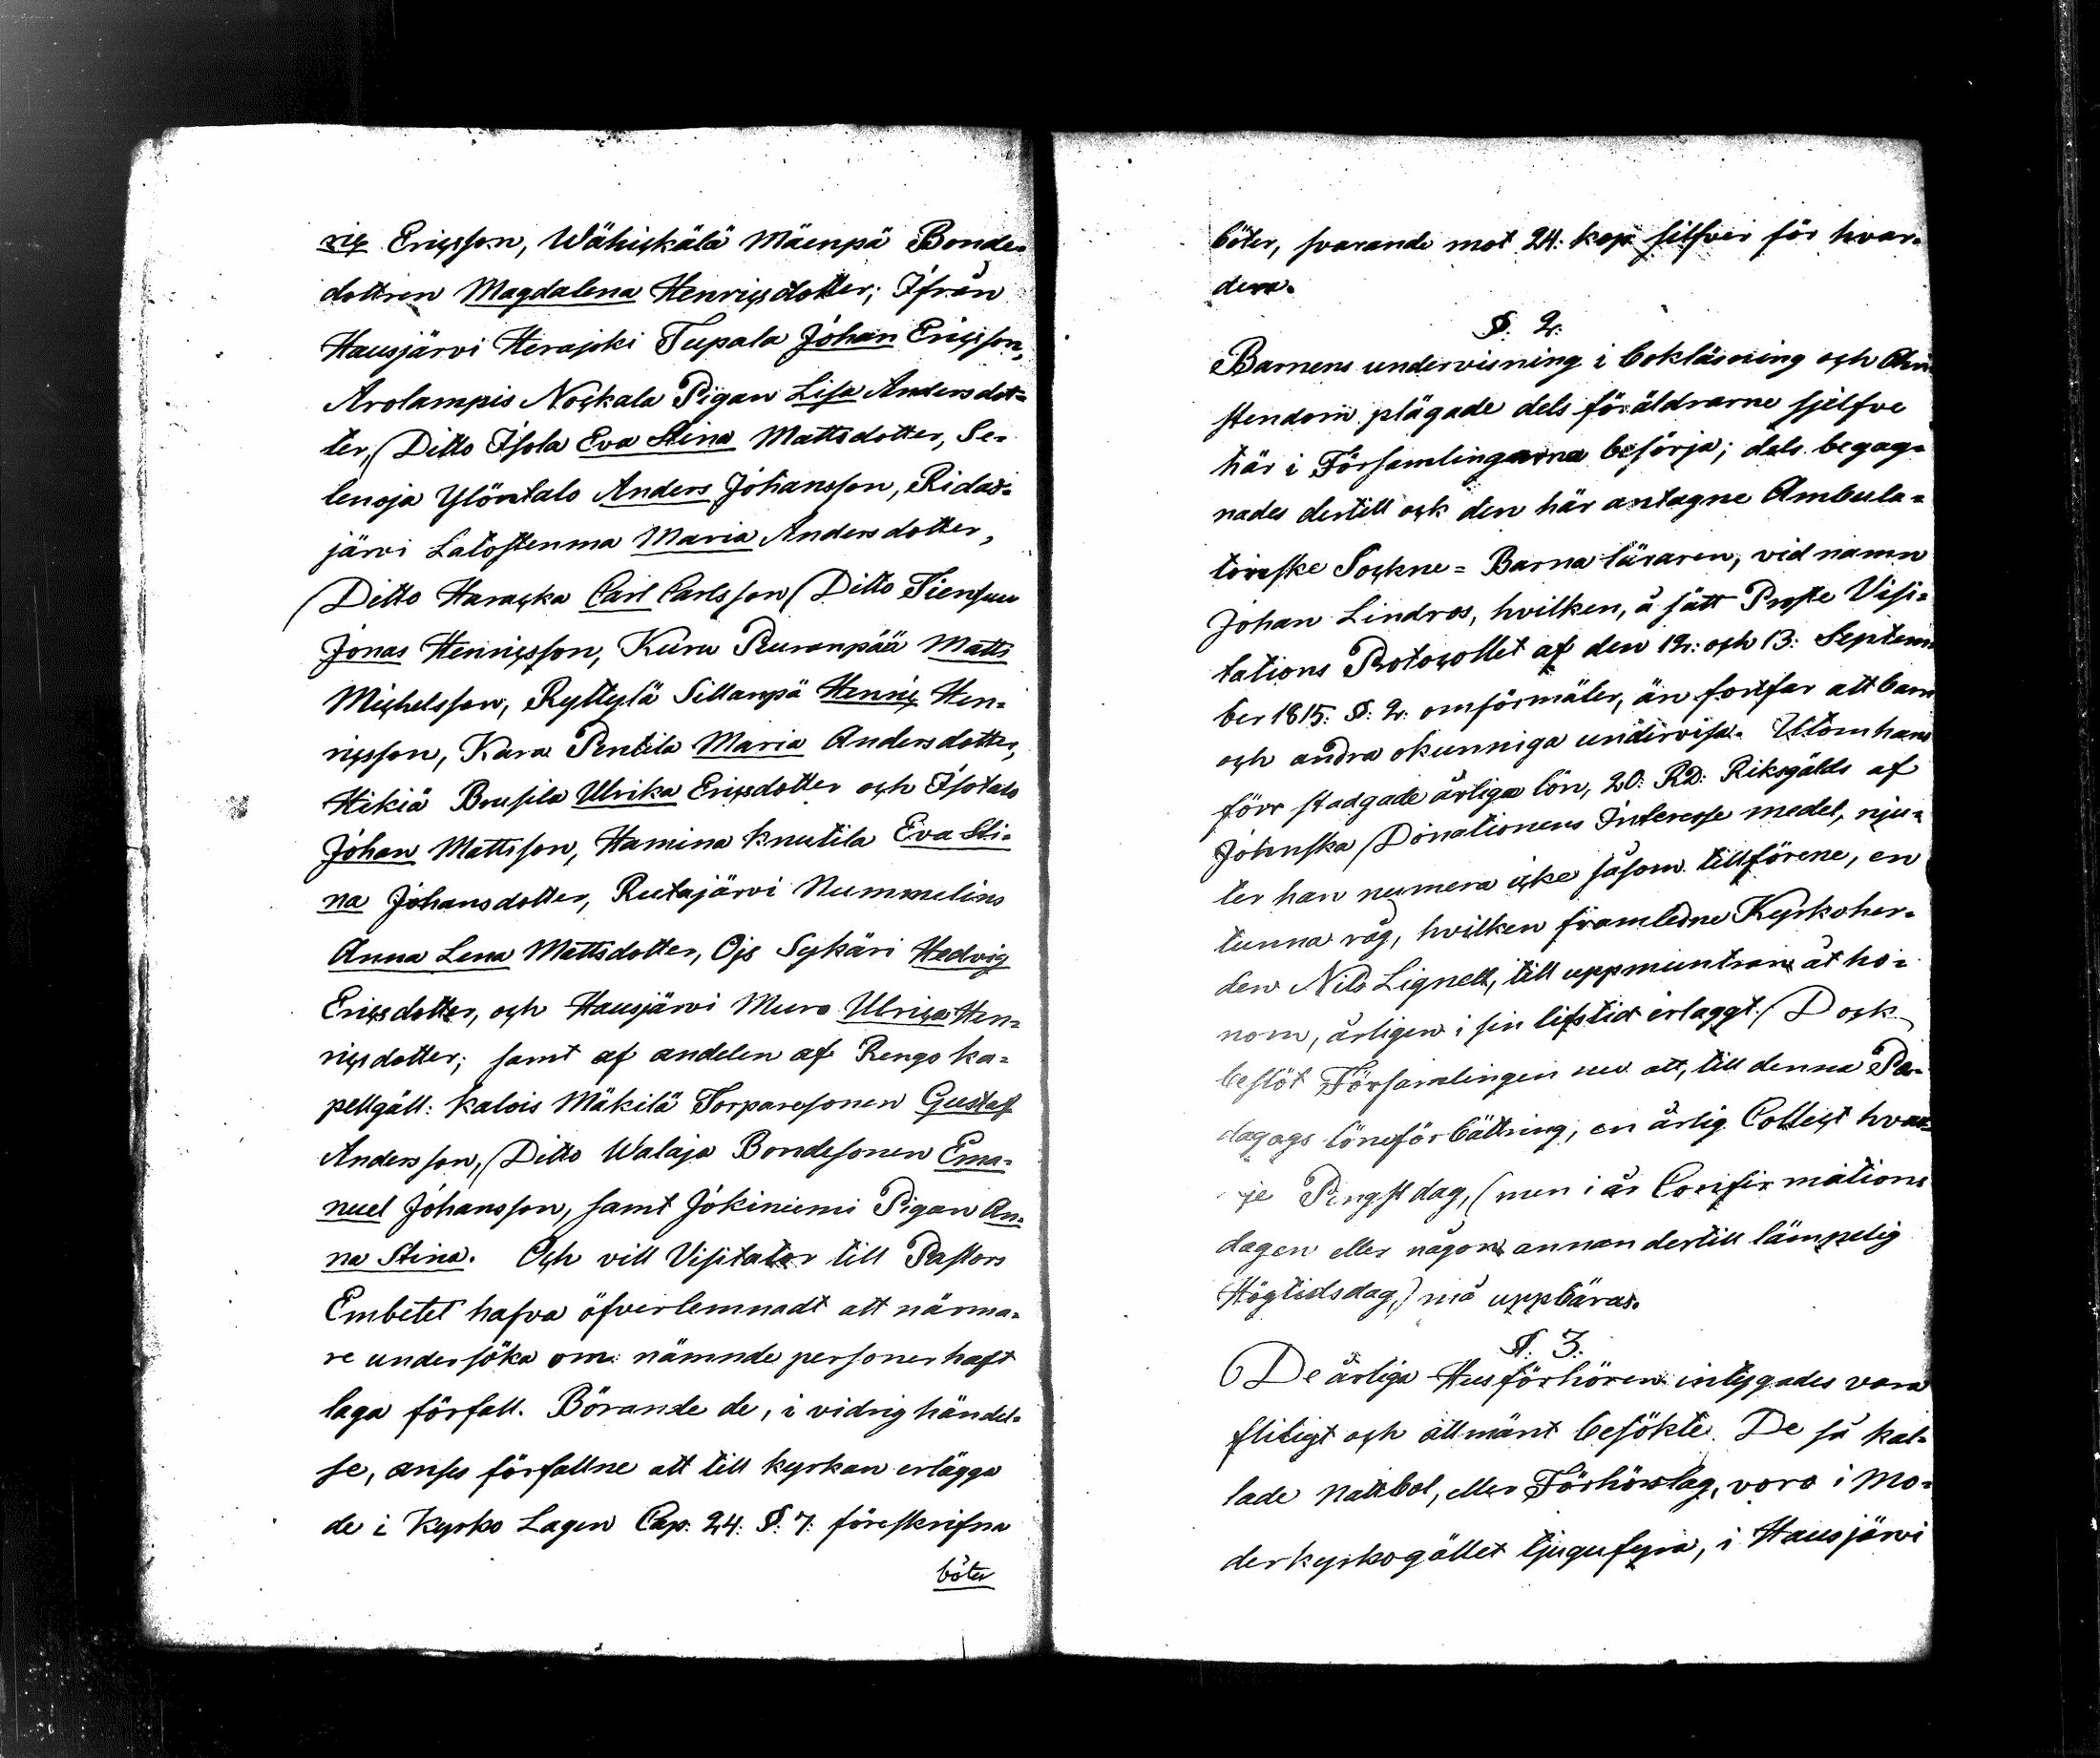 ric Ericsson, Wähickälä Mäenpä Bonde=
dottren Magdalena Henricsdotter; Ifrån
Hausjärvi Herajoki Tupala Johan Ericsson,
Arolampis Nockala Pigan Lisa Andersdot=
ter, Ditto Isola Eva Stina Mattsdotter, Se=
lenoja Ylöntalo Anders Johansson, Ridas=
järvi Latostenma Maria Andersdotter,
Ditto Haracka Carl Carlsson Ditto Tiensuu
Jonas Henricsson, Kuru Puranpää Matts
Michelsson, Ryttylä Sillanpä Henric Hen=
ricsson, Kara Pentila Maria Andersdotter,
Hikiä Brusila Ulrika Ericsdotter och Isotalo
Johan Mattsson, Hamina Knutila Eva Sti=
na Johansdotter, Rutajärvi Nummelins
Anna Lena Mattsdotter, Ojs Sykäri Hedvig
Ericsdotter, och Hausjärvi Muro Ulrica Hen=
ricsdotter; samt af andelen af Rengo ka=
pellgäll: Kalois Mäkilä Torparesonen Gustaf
Andersson, Ditto Walaja Bondesonen Ema=
nuel Johansson, samt Jokiniemi Pigan An=
na Stina. Och vill Visitator till Pastors
Embetet hafva öfverlemnadt att närma=
re undersöka om nämnde personer haft
laga förfall. Börande de, i vidrig händel=
se, anses förfallne att till kyrkan erlägga
de i Kyrko Lagen Cap: 24: §: 7: föreskrifna
böter
böter, svarande mot 24: kop: silfver för hvar=
dera.
§: 2:
Barnens undervisning i bokläsning och Chri
stendom plägade dels föräldrarne sjelfve
här i Församlingarna besörja; dels begag=
nades dertill ock den här antagne Ambula=
toriske Sockne= Barnaläraren, vid namn
Johan Lindros, hvilken, å sätt Proste Visi=
tations Protocollet af den 12: och 13: Septem
ber 1815: §: 2: omförmäler, än fortfar att barn
och andra okunniga undervisa. Utom hans
förr stadgade årliga lön, 20: RD: Riksgälds af
Johnska Donationens Interesse medel, nju=
ter han numera icke såsom tillförene, en
tunna råg, hvilken framledne Kyrkoher=
den Nils Lignell, till uppmuntran åt ho=
nom, årligen i sin lifstid erlaggt. Dock
beslöt Församlingen nu att, till denna Pe=
dagogs löneförbättring, en årlig Collect hvar=
je Pingstdag, (men i år Confirmations
dagen eller någon annan dertill lämpelig
Högtidsdag,) må uppbäras.
§: 3:
De årliga Husförhören intygades vara
flitigt och allmänt besökte. De så kal=
lade nattbol, eller Förhörslag, voro i Mo=
derkyrkogället tjugufyra, i Hausjärvi